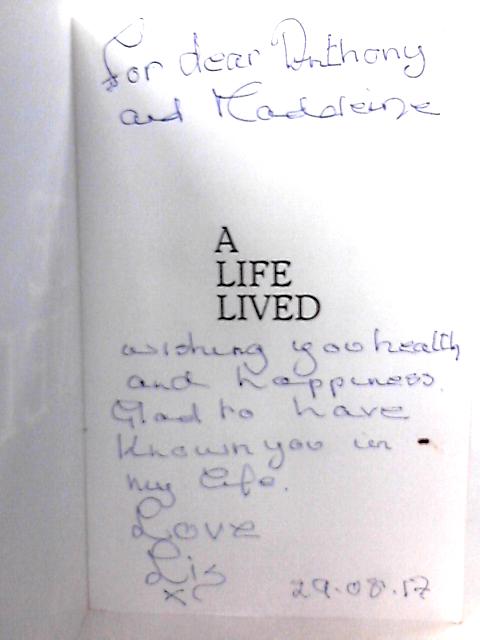 For dear Anthony
and Madeleine
A
LIFE
LIVED
wishing you health
and happiness.
Glad to have
known you in
my life.
Love
Lis
x
29.08.17